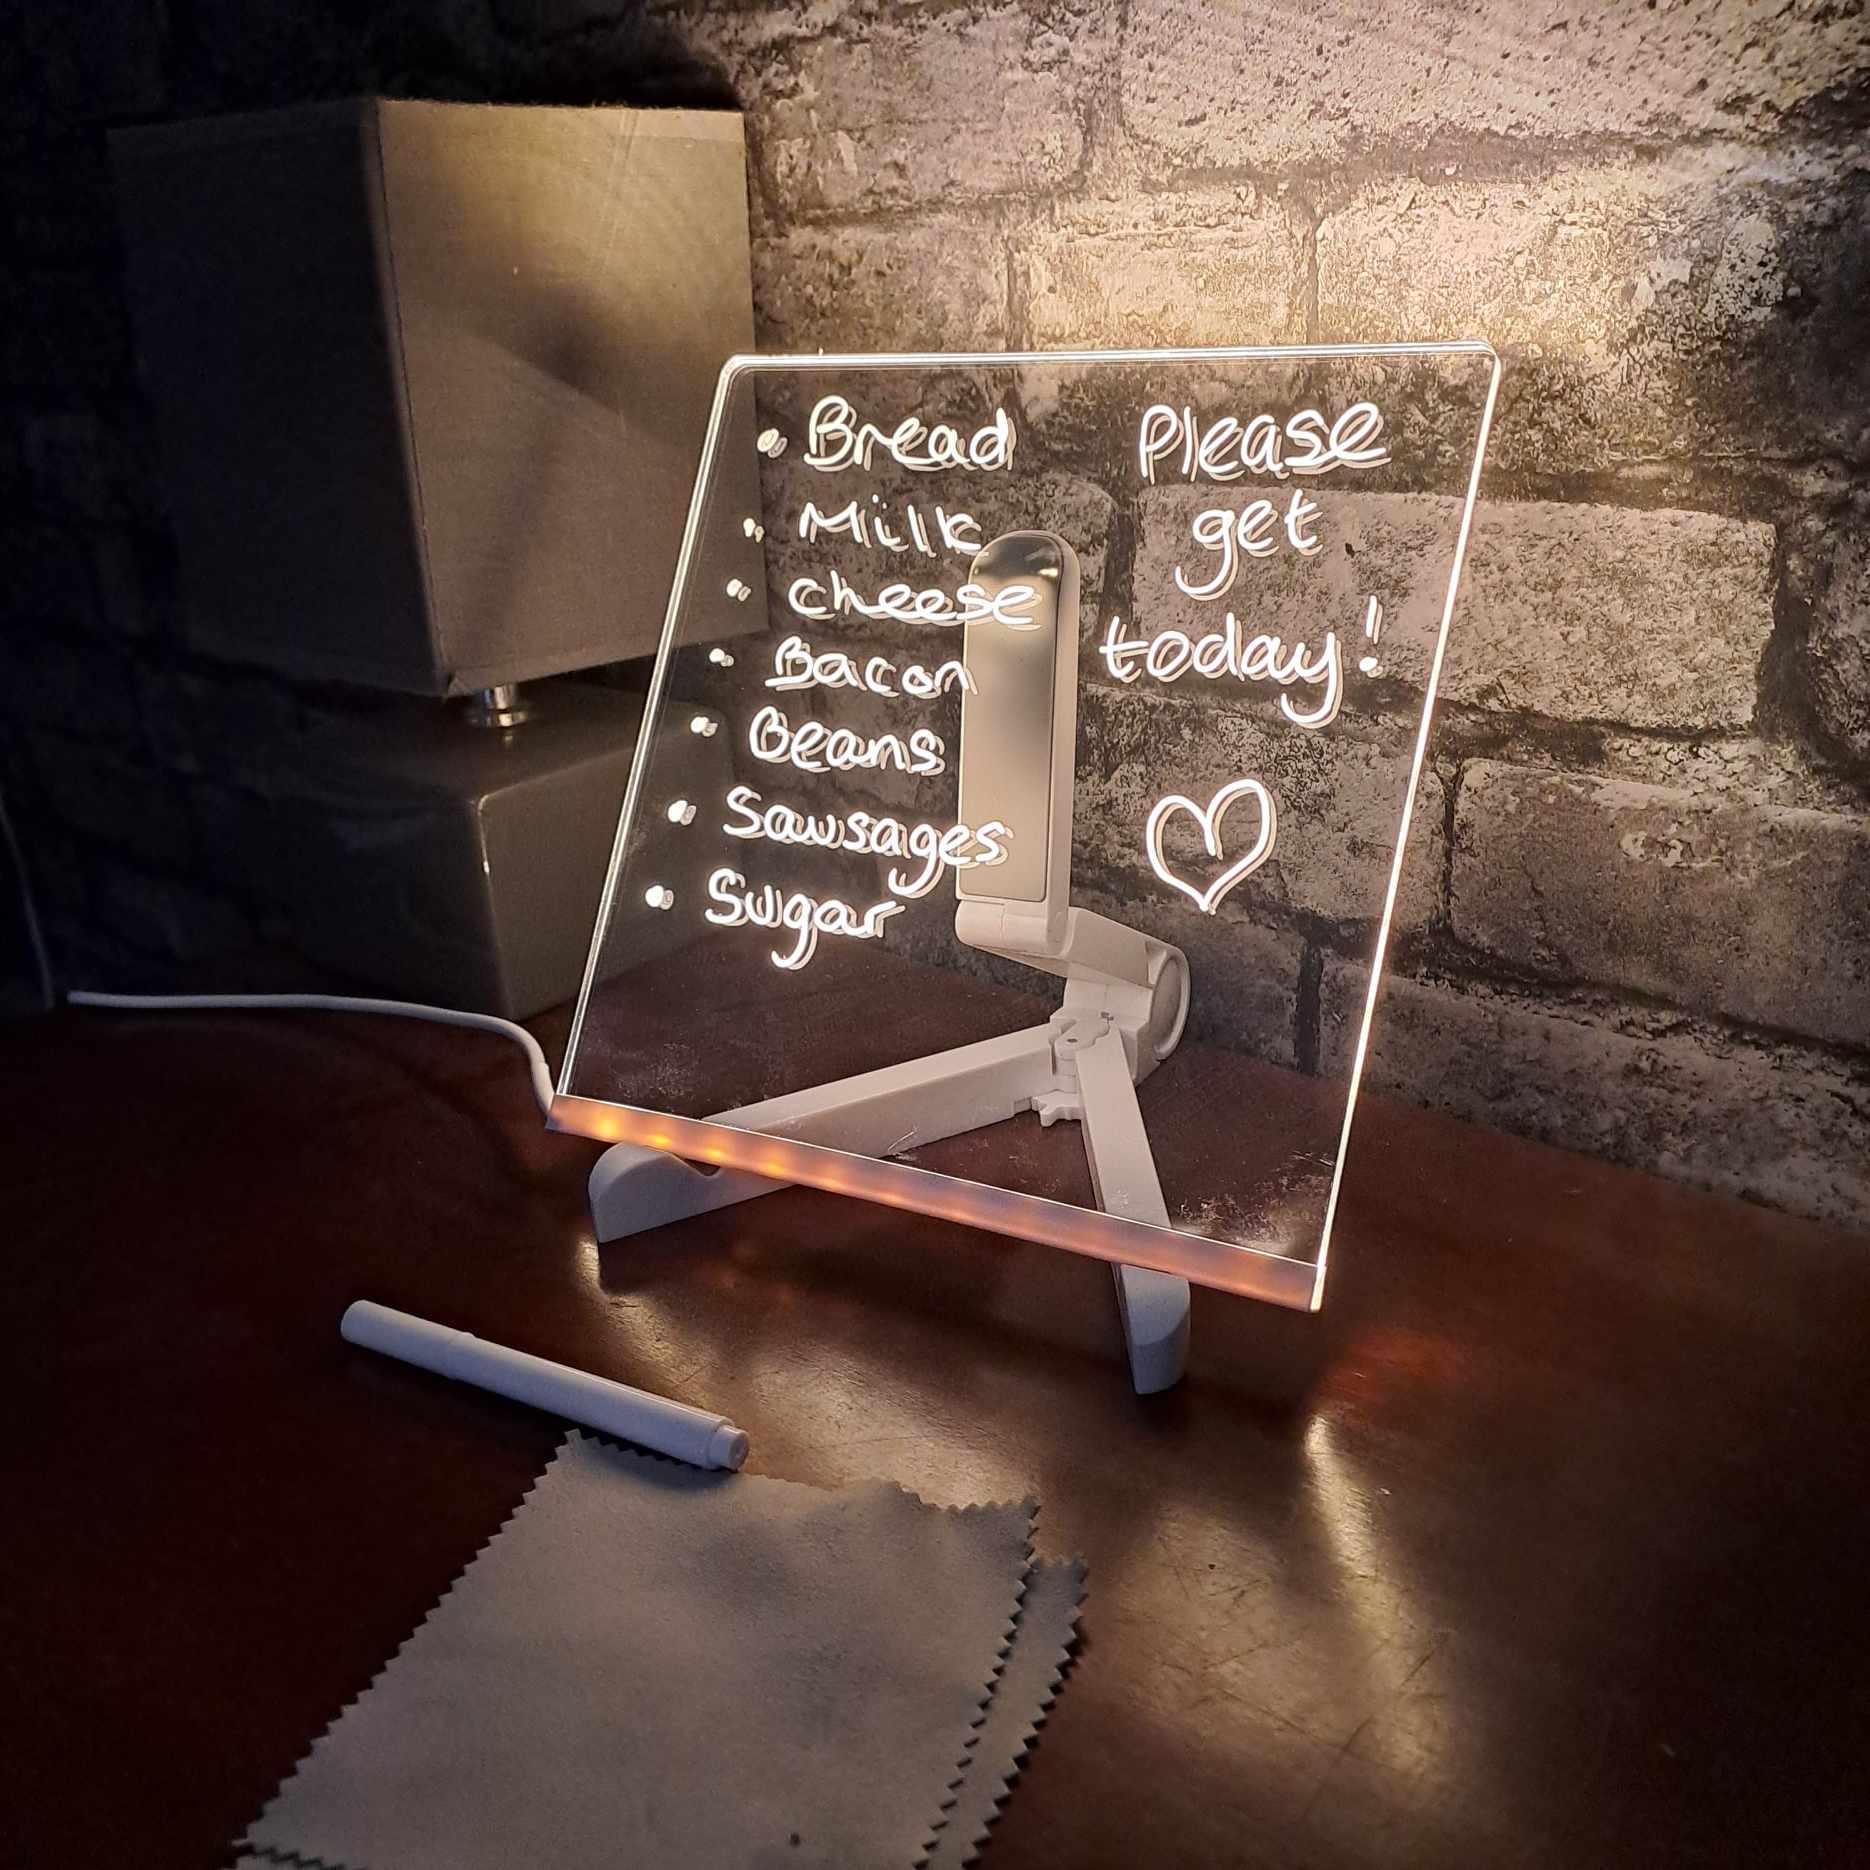 • Bread
• Milk
• cheese
• Bacon
• Beans
• Sausages
• Sugar
Please
get
today!